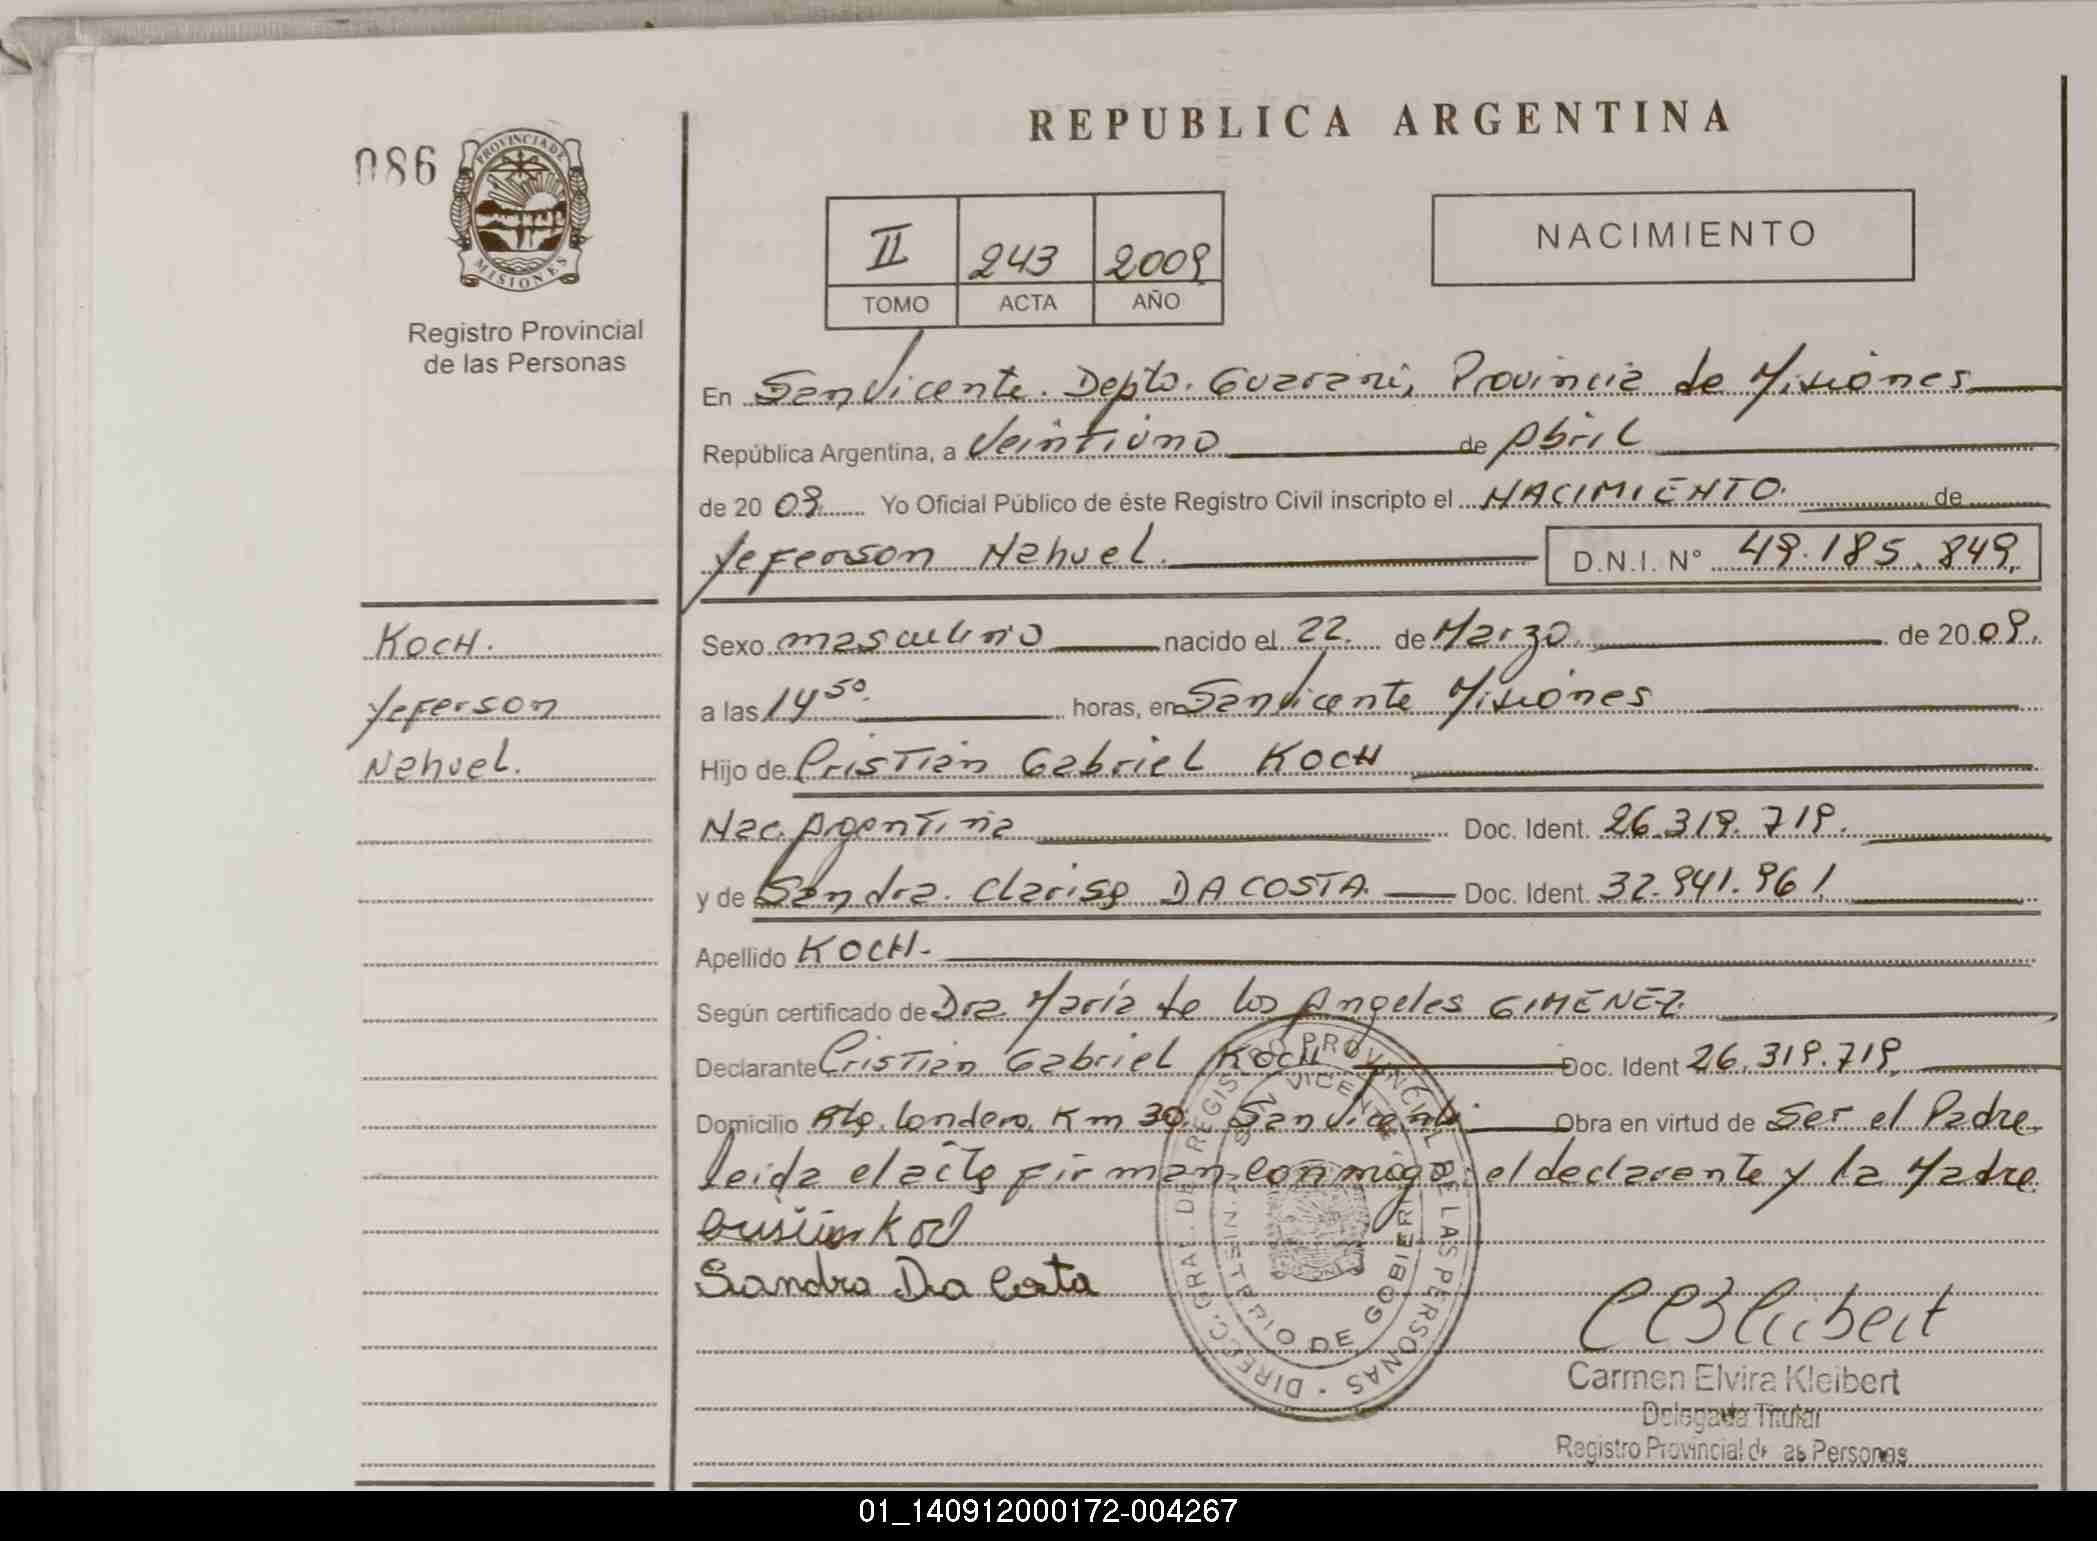 REPUBLICA ARGENTINA
086
PROVINCIA DE
MISIONES
Registro Provincial
de las Personas
II 243 2009
TOMO ACTA AÑO
NACIMIENTO
En San Vicente. Depto. Guarani, Provincia de Misiones
República Argentina, a Veintiuno de Abril
de 20 09 Yo Oficial Público de éste Registro Civil inscripto el NACIMIENTO. de
Yeferson Nahuel. D.N.I. N° 49.185.849.
KOCH.
Yeferson
Nahuel.
Sexo masculino nacido el 22. de Marzo. de 20 09.
a las 14 50. horas, en San Vicente Misiones
Hijo de Cristian Gabriel KOCH
Nac. Argentina Doc. Ident. 26.319.719.
y de Sandra. Clarisa DA COSTA. Doc. Ident. 32.941.961.
Apellido KOCH.
Según certificado de Dra. María de los Angeles GIMENEZ.
Declarante Cristian Gabriel KOCH Doc. Ident 26.319.719.
Domicilio Londero, Km 30. San Vicente Obra en virtud de Ser el Padre
leida el acta firman conmigo: el declarante y la Madre
Sandra Da Costa
DIREC. GRAL. DE REGISTRO PROVINCIAL DE LAS PERSONAS
SAN VICENTE
MINISTERIO DE GOBIERNO
Carmen Elvira Kleibert
Delegada Titular
Registro Provincial de las Personas
01_140912000172-004267